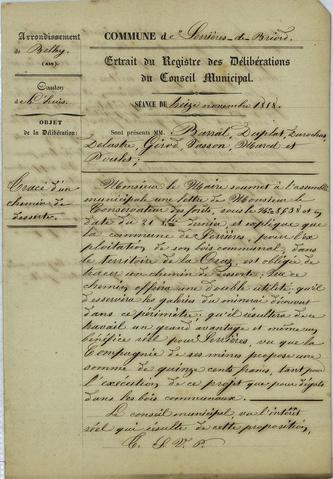 Arrondissement
de Belley
(AIN)
Canton
de L'huis
OBJET
de la Délibération:
Tracé d'un
chemin de
desserte.
COMMUNE de Serrières-de-Briord
Extrait du Registre des Délibérations
du Conseil Municipal.
SÉANCE DU treize novembre 1858.
Sont présents MM. Barral, Duplat, Durochat,
Delastre, Girod, Vasson, Marcel et
Monsieur le Maire soumet à l'assemblée
municipale une lettre de Monsieur le
Conservateur des forêts, sous le No 5638 et en
date du 21 dernier et explique que
la commune de Serrières, pour l'ex
ploitation de son bois communal, dans
le territoire de la est obligée de
tracer un chemin de desserte; que ce
chemin offrira une double utilité, qu'il
desservira les galeries du minerai découvert
dans ce périmètre; qu'il résultera de ce
travail un grand avantage et même un
bénéfice réel pour Serrières, vu que la
Compagnie de ses mines propose une
somme de quinze cents francs, tant pour
l'exécution de ce projet que pour dégâts
dans les bois communaux.
Le conseil municipal, vu l'intérêt
réel qui résulte de cette proposition,
T. S. V. P.